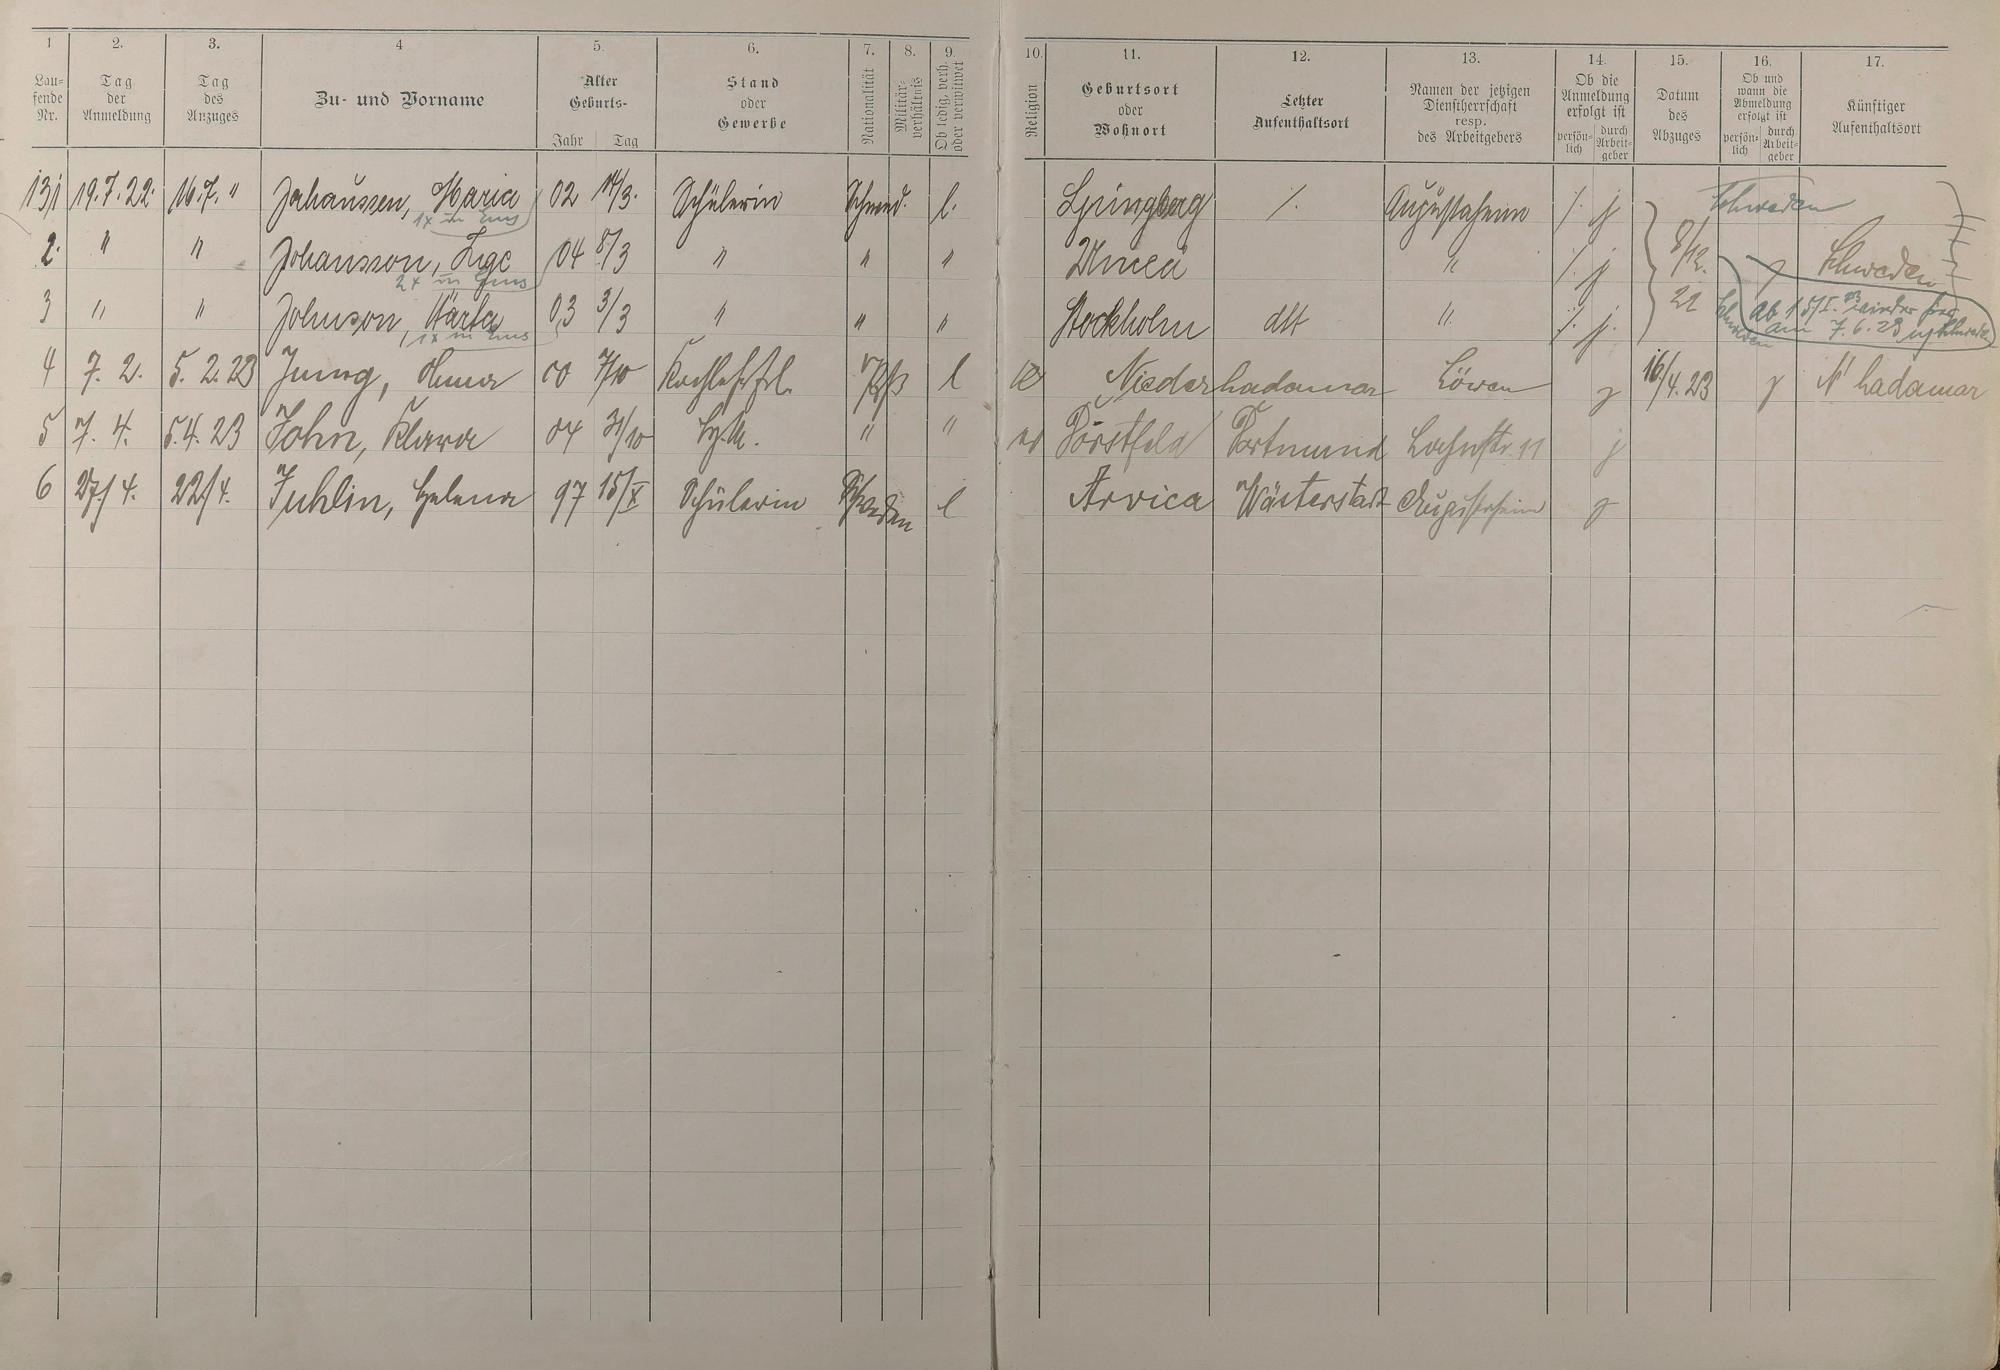 1 2. 3. 4 5. 6. 7. 8. 9. 10. 11. 12. 13. 14. 15. 16. 17.
Lau-
fende
Nr.
Tag
der
Anmeldung
Tag
des
Anzuges
Zu- und Vorname
Alter
Geburts-
Jahr Tag
Stand
oder
Gewerbe
Nationalität
Militär-
verhältnis
Ob ledig, verh.
oder verwitwet
Religion
Geburtsort
oder
Wohnort
Letzter
Aufenthaltsort
Namen der jetzigen
Dienstherrschaft
resp.
des Arbeitgebers
Ob die
Anmeldung
erfolgt ist
persön-
lich
durch
Arbeit-
geber
Datum
des
Abzuges
Ob und
wann die
Abmeldung
erfolgt ist
persön-
lich
durch
Arbeit-
geber
Künftiger
Aufenthaltsort
19.7.22. 16.7. " Johanssen, Maria 02 14/3. Schülerin Schwed. l. Augustaheim /. j Schweden
1x in Ems
2. " " Johansson, 04 8/3 " " " " /. j 8/12. Schweden
2x in Ems
22
3 " " Johnson, Märta 03 3/3 " " " Stockholm " /. j.
1x in Ems
Schweden
am 7.6.23
4 7. 2. 5. 2. 23 Jung, 00 7/10 l Niederhadamar Löwen j 16/4. 23 j N' hadamar
5 7. 4. 5. 4. 23 John, Klara 04 " " Dorstfeld Dortmund 11 j
6 27/4. 22/4. Juhlin, Helena 97 15/X Schülerin Schweden l Arvica Wästerstadt Augustaheim j